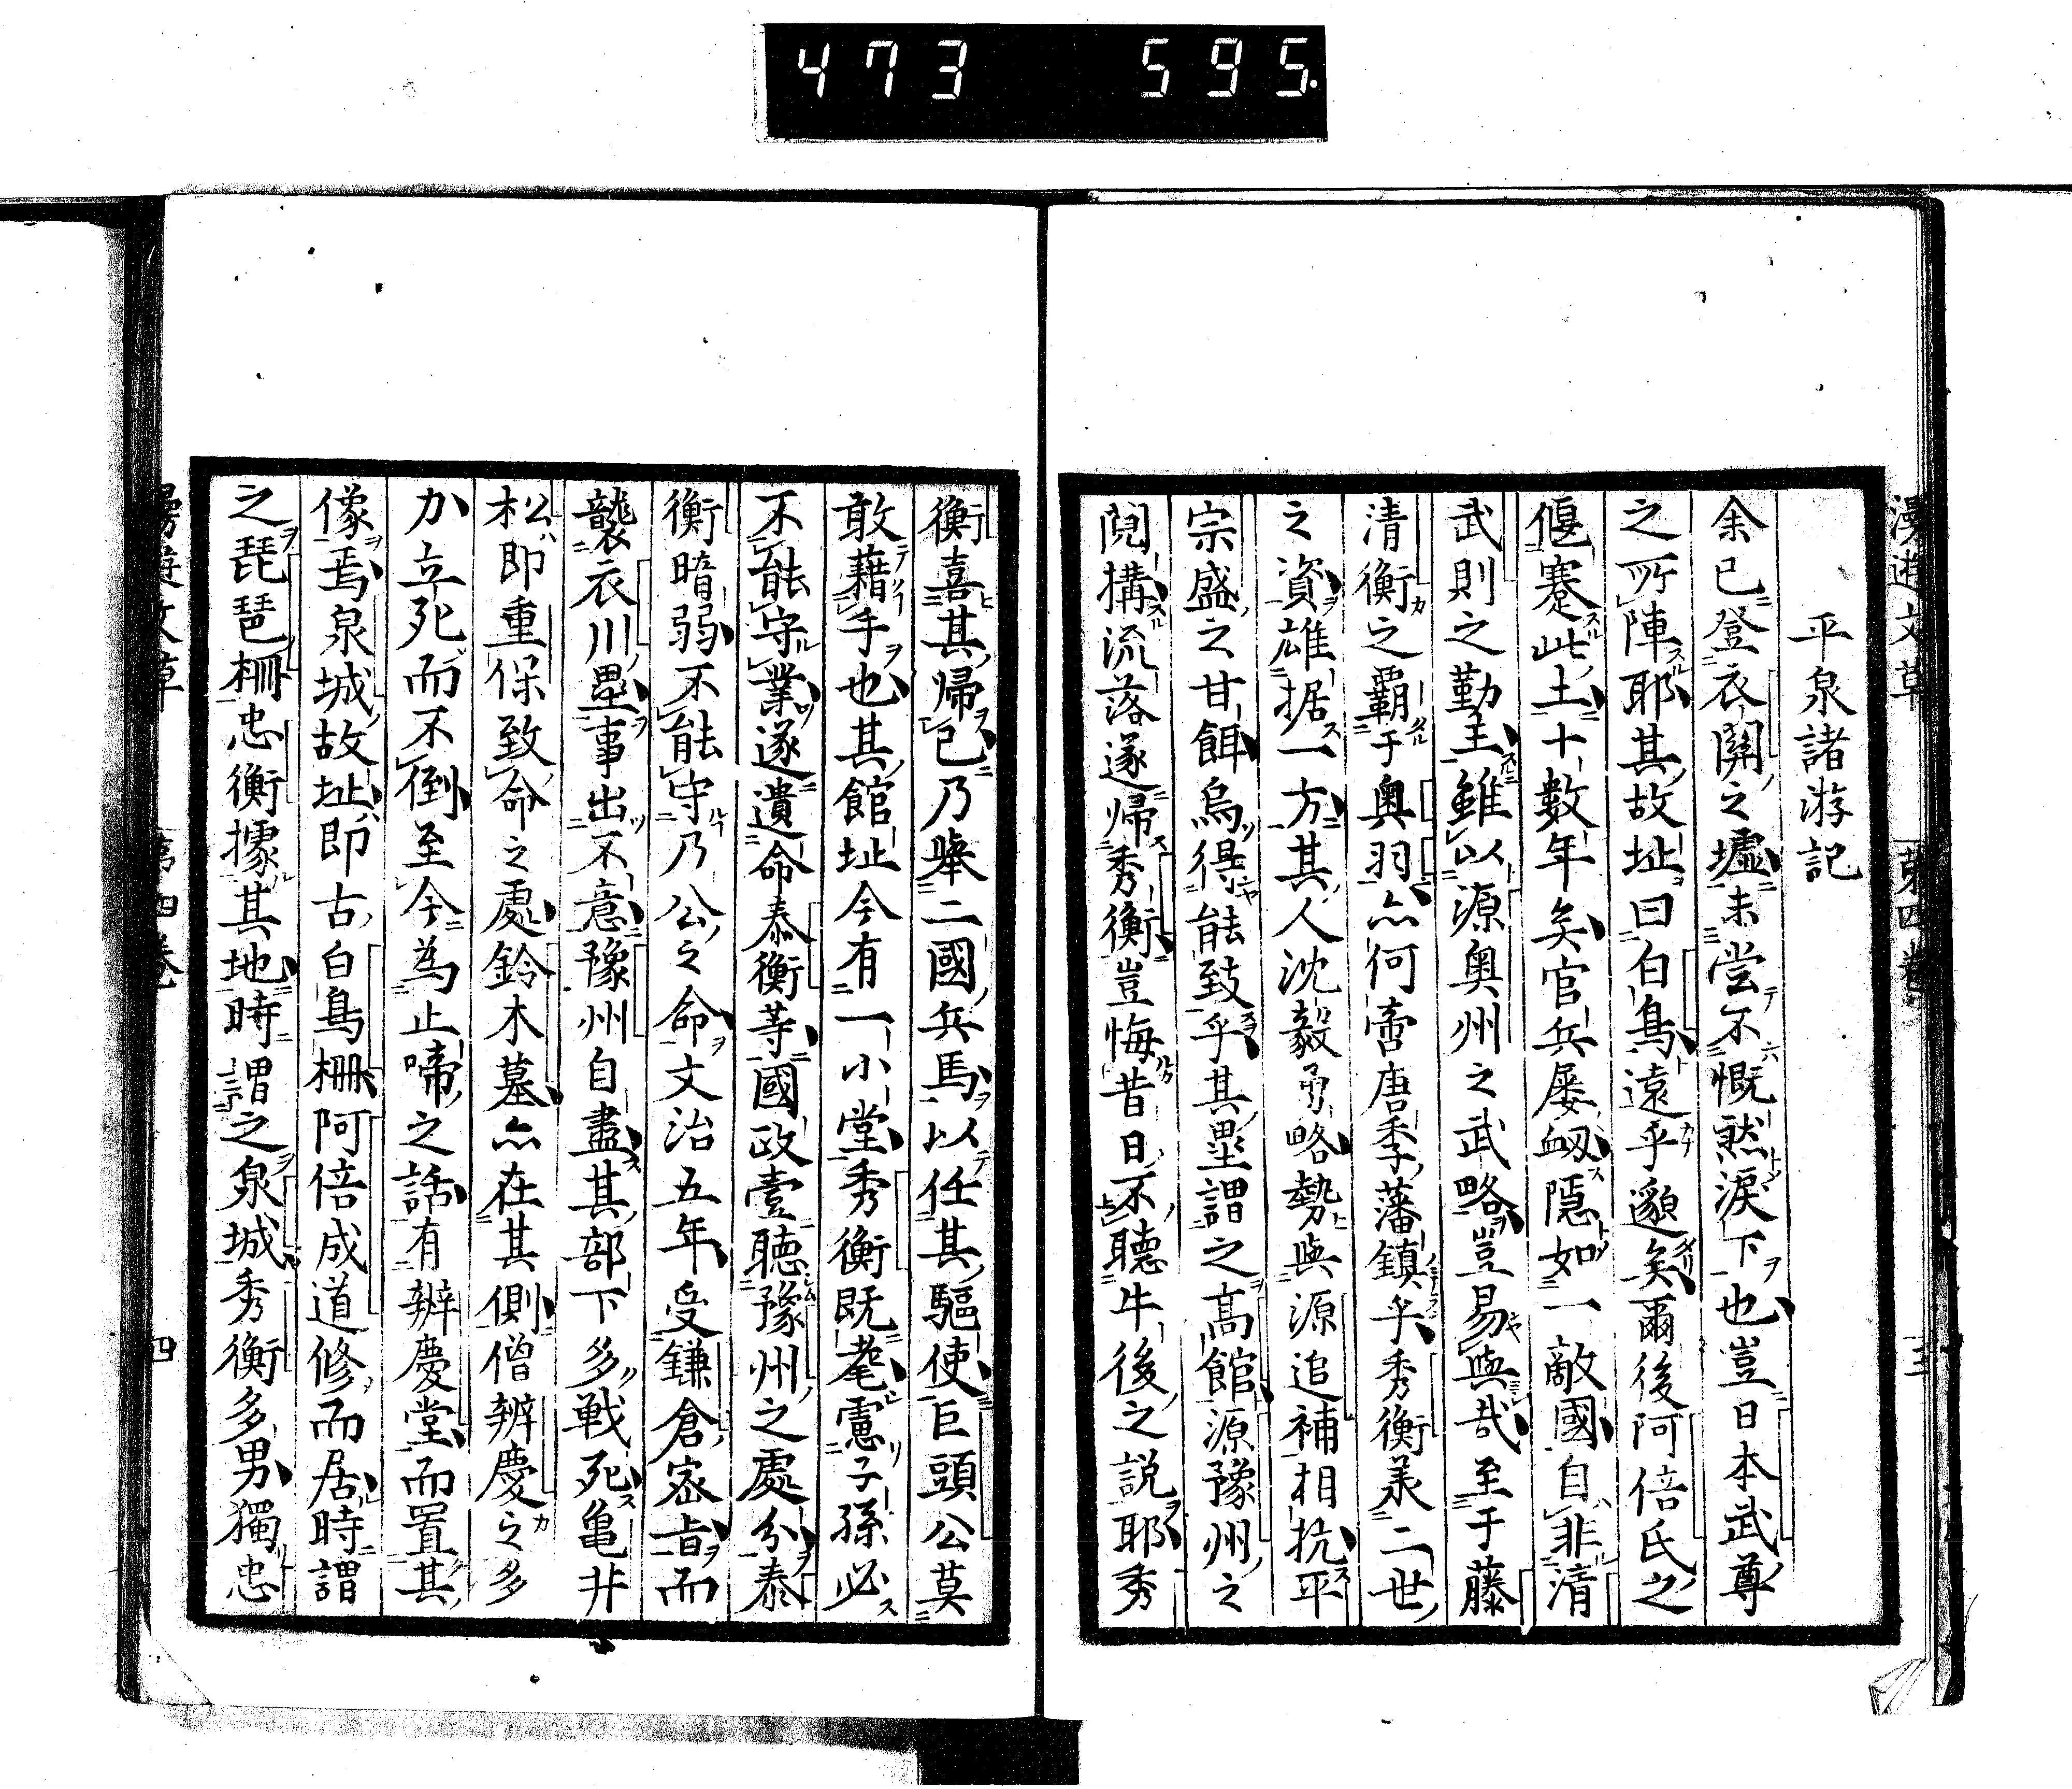 473 595.
漫遊文草 第四巻 三
平泉諸游記
余已登衣關之墟未嘗不慨然淚下也豈日本武尊
之所陣耶其故址曰白鳥遠乎邈矣爾後阿倍氏之
偃蹇此土十數年矣官兵屡衂隱如一敵國自非清
武則之勤王雖以源奥州之武略豈易與哉至于藤
清衡之覇于奥羽亦何啻唐季藩鎮乎秀衡承二世
之資雄据一方其人沈毅勇略勢與源追補相抗平
宗盛之甘餌烏得能致乎其塁謂之髙館源豫州之
鬩構流落遂帰秀衡豈悔昔日不聽牛後之説耶秀
衡喜其帰已乃擧二國兵馬以任其驅使巨頭公莫
敢藉手也其館址今有一小堂秀衡既耄慮子孫必
不能守業遂遺命泰衡等國政壹聴豫州之處分泰
衡暗弱不能守乃公之命文治五年受鎌倉宻旨而
襲衣川塁事出不意豫州自盡其部下多戦死亀井
松即重保致命之處鈴木墓亦在其側僧辨慶之多
力立死而不倒至今為止啼之話有辨慶堂而置其
像焉泉城故址即古白鳥柵阿倍成道修而居時謂
之琵琶柵忠衡據其地時謂之泉城秀衡多男獨忠
漫遊文草 第四巻 四